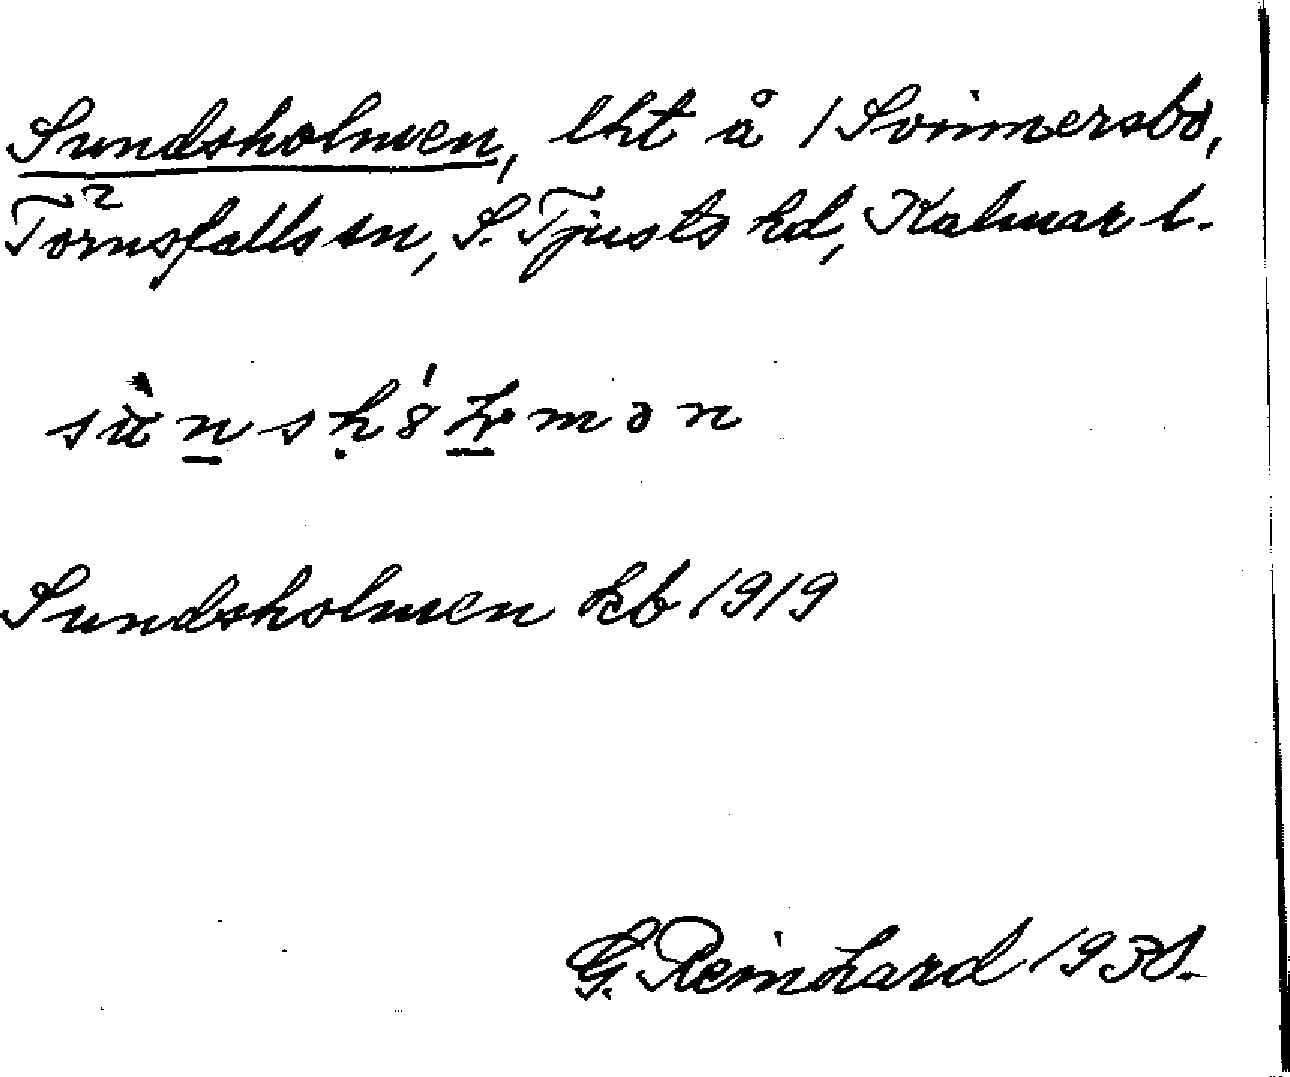 Sundsholmen, lht å 1 Svinnersbo,
Törnsfalls sn, S. Tjusts hd, Kalmar l.
Sundsholmen kb 1919
G. Reinhard 193